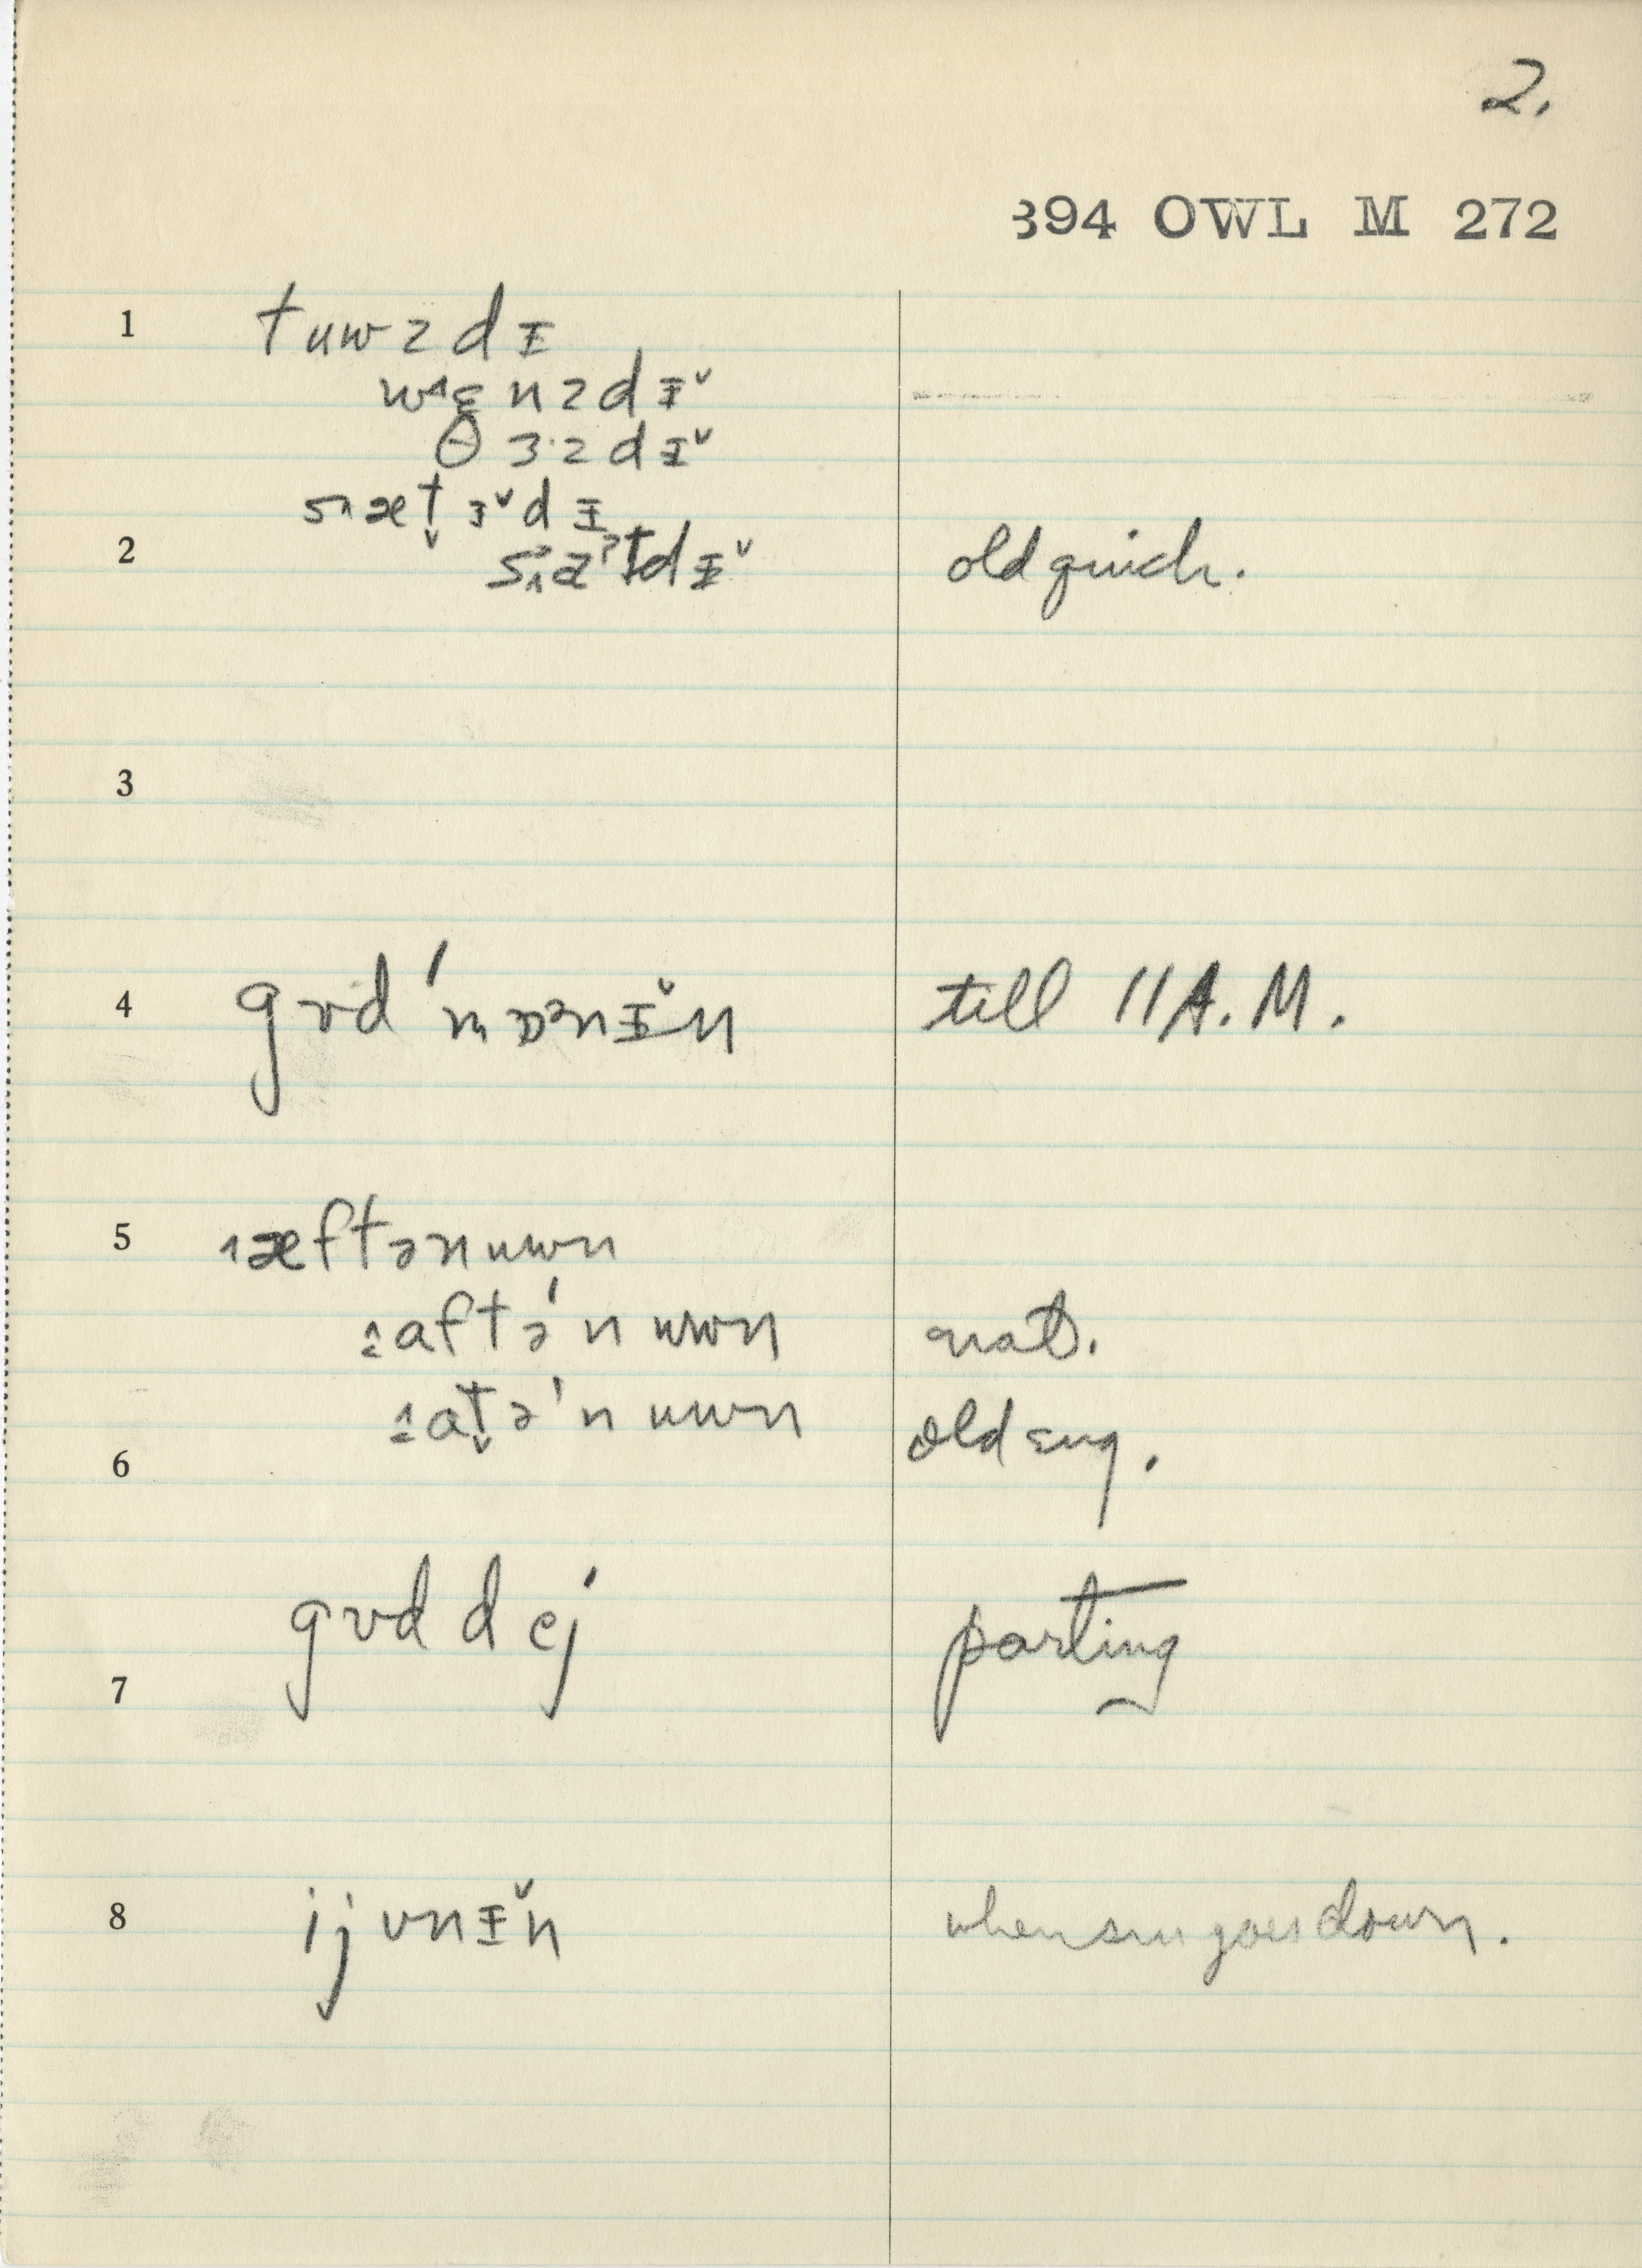 2.
394 OWL M 272
1 tuwzdɪ
wɛnzdɪˇ
θɜ·zdɪˇ
2 old quick.
3
4 gʊd 'mɒənɪˇn till 11 A.M.
5 æftənuwn
aftə'nuwn nat.
atə'nuwn old eng.
6
gʊd dej parting
7
8 ijvnɪˇn when sun goes down.